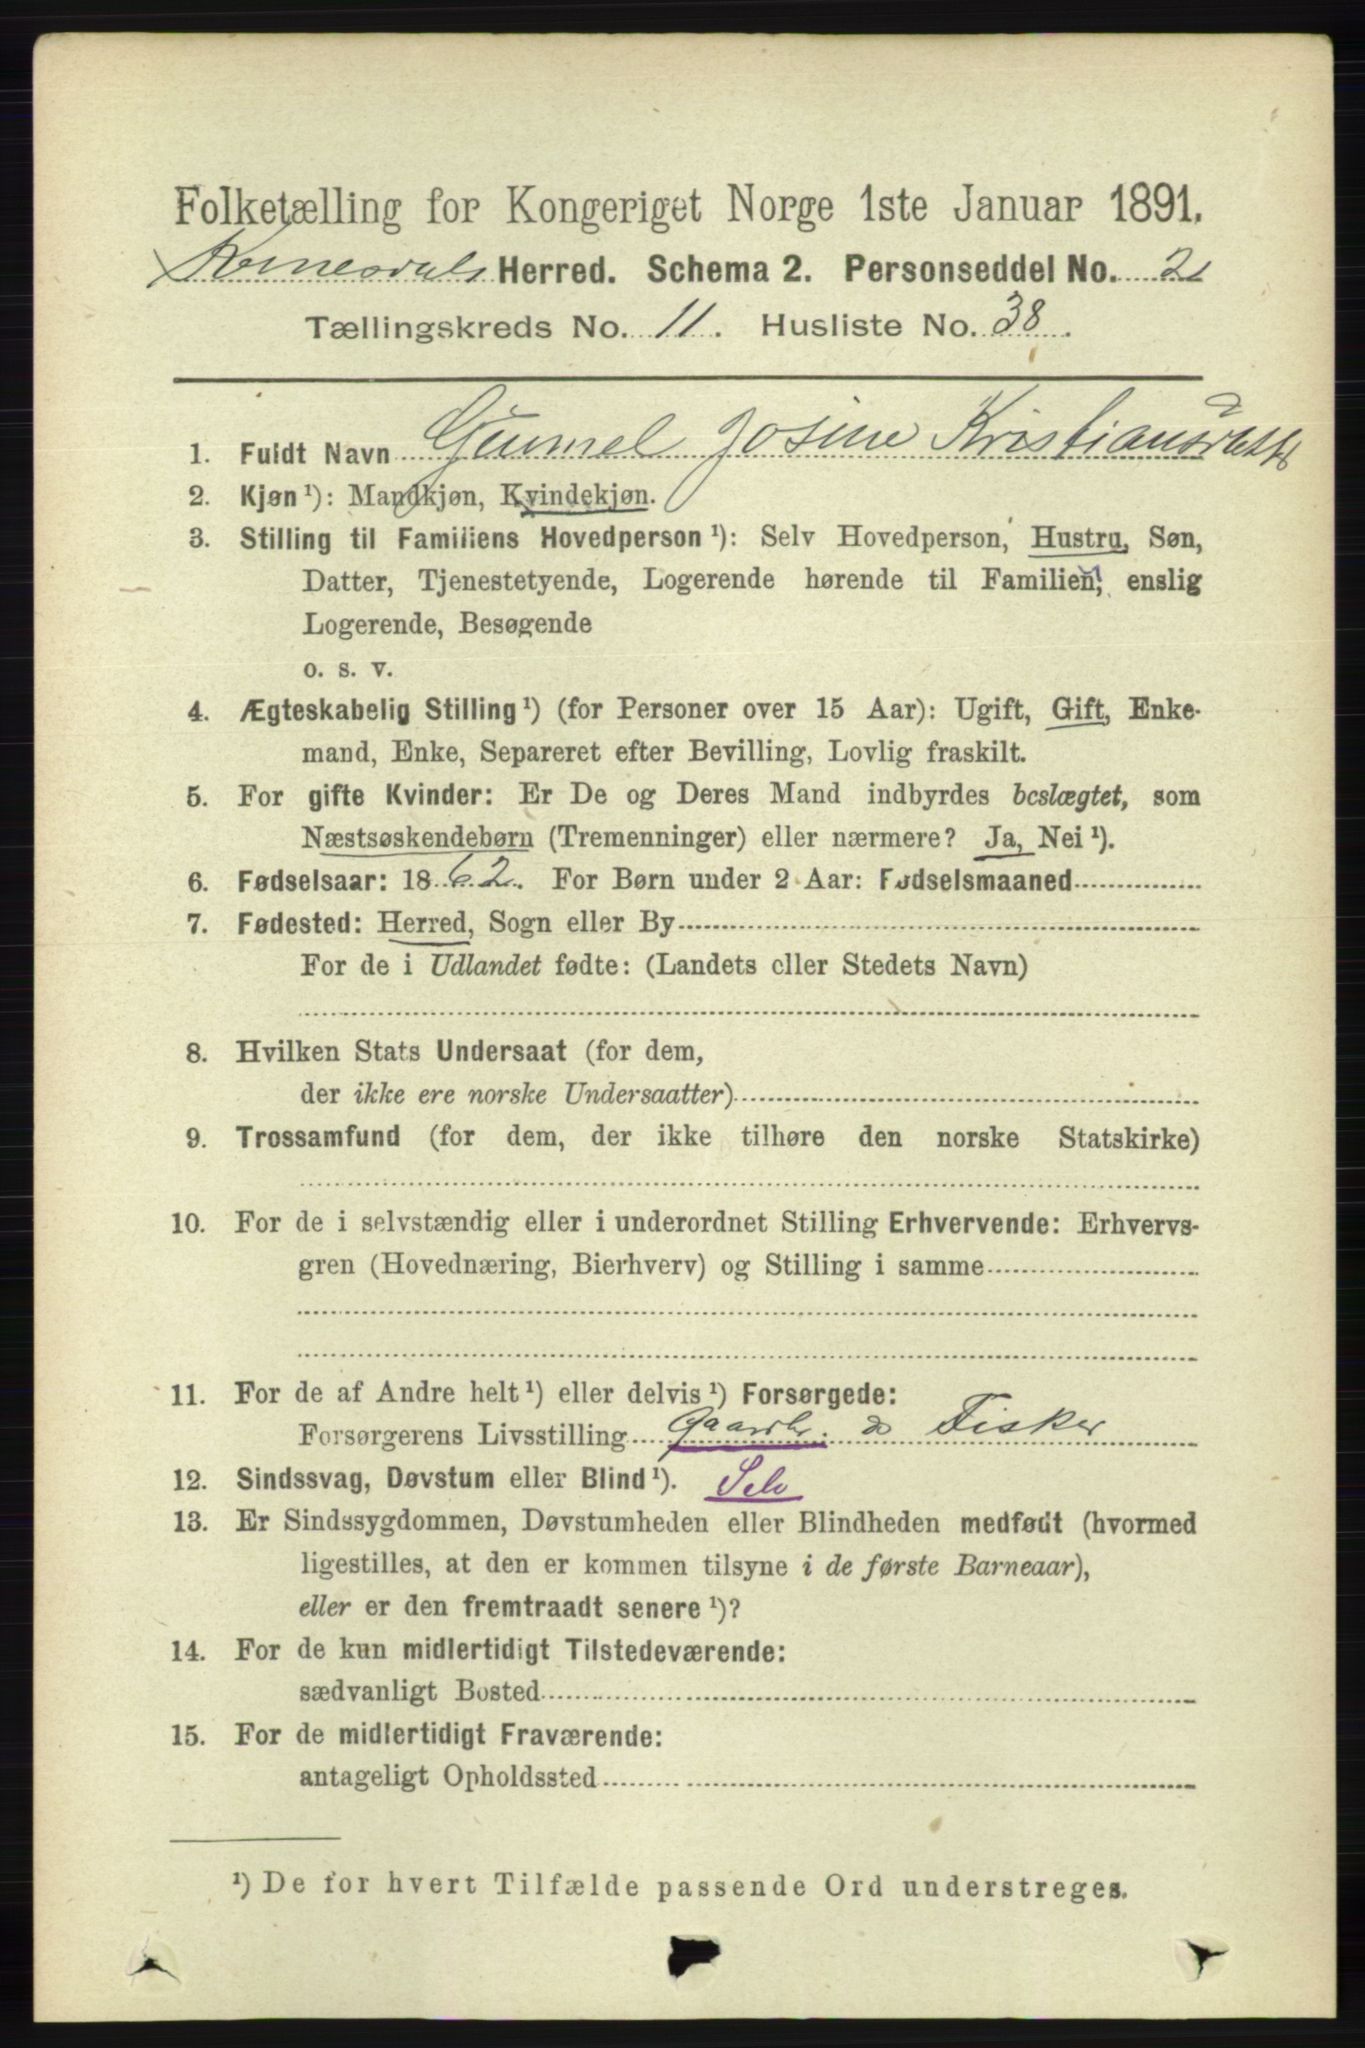 Folketælling for Kongeriget Norge 1ste Januar 1891.
Herred. Schema 2. Personseddel No. 2
Tællingskreds No. 11. Husliste No. 38.
1. Fuldt Navn Gunnel Josine Kristiansdatter
2. Kjøn ¹): Mandkjøn, Kvindekjøn.
3. Stilling til Familiens Hovedperson ¹): Selv Hovedperson, Hustru, Søn,
Datter, Tjenestetyende, Logerende hørende til Familien, enslig
Logerende, Besøgende
o. s. v.
4. Ægteskabelig Stilling ¹) (for Personer over 15 Aar): Ugift, Gift, Enke-
mand, Enke, Separeret efter Bevilling, Lovlig fraskilt.
5. For gifte Kvinder: Er De og Deres Mand indbyrdes beslægtet, som
Næstsøskendebørn (Tremenninger) eller nærmere? Ja, Nei ¹).
6. Fødselsaar: 1862. For Børn under 2 Aar: Fødselsmaaned
7. Fødested: Herred, Sogn eller By
For de i Udlandet fødte: (Landets eller Stedets Navn)
8. Hvilken Stats Undersaat (for dem,
der ikke ere norske Undersaatter)
9. Trossamfund (for dem, der ikke tilhøre den norske Statskirke)
10. For de i selvstændig eller i underordnet Stilling Erhvervende: Erhvervs-
gren (Hovednæring, Bierhverv) og Stilling i samme
11. For de af Andre helt ¹) eller delvis ¹) Forsørgede:
Forsørgerens Livsstilling Gaardbr. & Fisker
12. Sindssvag, Døvstum eller Blind ¹). Selv
13. Er Sindssygdommen, Døvstumheden eller Blindheden medfødt (hvormed
ligestilles, at den er kommen tilsyne i de første Barneaar),
eller er den fremtraadt senere ¹)?
14. For de kun midlertidigt Tilstedeværende:
sædvanligt Bosted
15. For de midlertidigt Fraværende:
antageligt Opholdssted
¹) De for hvert Tilfælde passende Ord understreges.